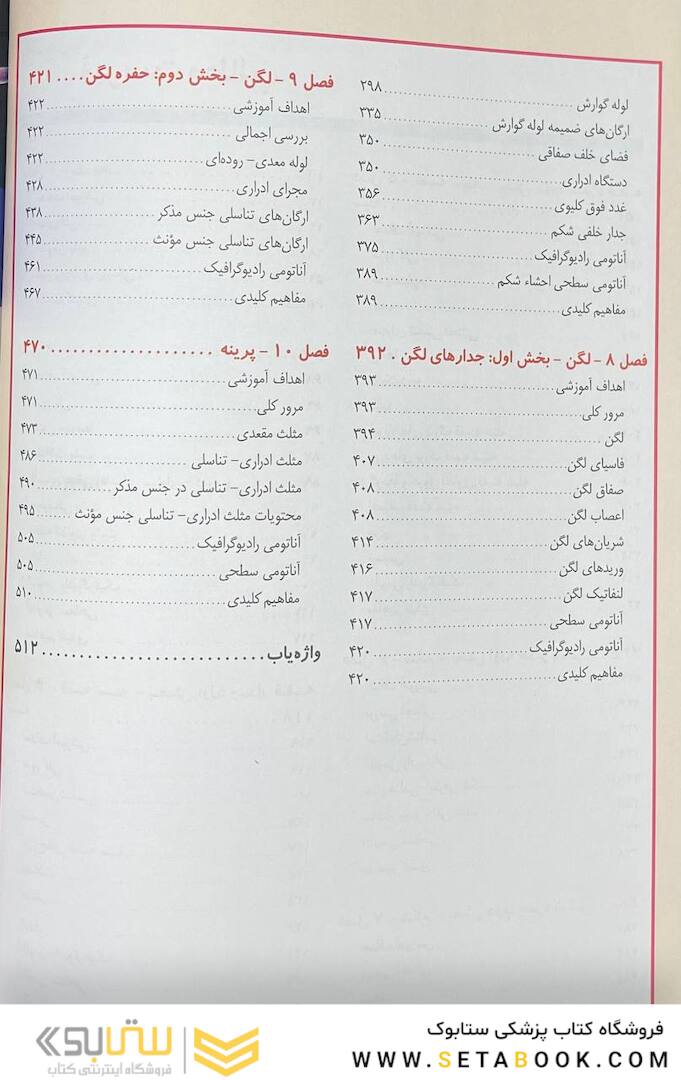 لوله گوارش ........ ۲۹۸
ارگان‌های ضمیمه لوله گوارش ........ ۳۳۵
فضای خلف صفاقی ........ ۳۵۰
دستگاه ادراری ........ ۳۵۰
غدد فوق کلیوی ........ ۳۵۶
جدار خلفی شکم ........ ۳۶۳
آناتومی رادیوگرافیک ........ ۳۷۵
آناتومی سطحی احشاء شکم ........ ۳۸۹
مفاهیم کلیدی ........ ۳۸۹
فصل ۸ - لگن - بخش اول: جدارهای لگن . ۳۹۲
اهداف آموزشی ........ ۳۹۳
مرور کلی ........ ۳۹۳
لگن ........ ۳۹۴
فاسیای لگن ........ ۴۰۷
صفاق لگن ........ ۴۰۸
اعصاب لگن ........ ۴۰۸
شریان‌های لگن ........ ۴۱۴
وریدهای لگن ........ ۴۱۶
لنفاتیک لگن ........ ۴۱۷
آناتومی سطحی ........ ۴۱۷
آناتومی رادیوگرافیک ........ ۴۲۰
مفاهیم کلیدی ........ ۴۲۰
فصل ۹ - لگن - بخش دوم: حفره لگن .... ۴۲۱
اهداف آموزشی ........ ۴۲۲
بررسی اجمالی ........ ۴۲۲
لوله معدی- روده‌ای ........ ۴۲۲
مجرای ادراری ........ ۴۲۸
ارگان‌های تناسلی جنس مذکر ........ ۴۳۸
ارگان‌های تناسلی جنس مؤنث ........ ۴۴۵
آناتومی رادیوگرافیک ........ ۴۶۱
مفاهیم کلیدی ........ ۴۶۷
فصل ۱۰ - پرینه ........ ۴۷۰
اهداف آموزشی ........ ۴۷۱
مرور کلی ........ ۴۷۱
مثلث مقعدی ........ ۴۷۳
مثلث ادراری- تناسلی ........ ۴۸۶
مثلث ادراری- تناسلی در جنس مذکر ........ ۴۹۰
محتویات مثلث ادراری- تناسلی جنس مؤنث ........ ۴۹۵
آناتومی رادیوگرافیک ........ ۵۰۵
آناتومی سطحی ........ ۵۰۵
مفاهیم کلیدی ........ ۵۱۰
واژه‌یاب ........ ۵۱۲
فروشگاه کتاب پزشکی ستابوک
WWW.SETABOOK.COM
ستابوک
فروشگاه اینترنتی کتاب